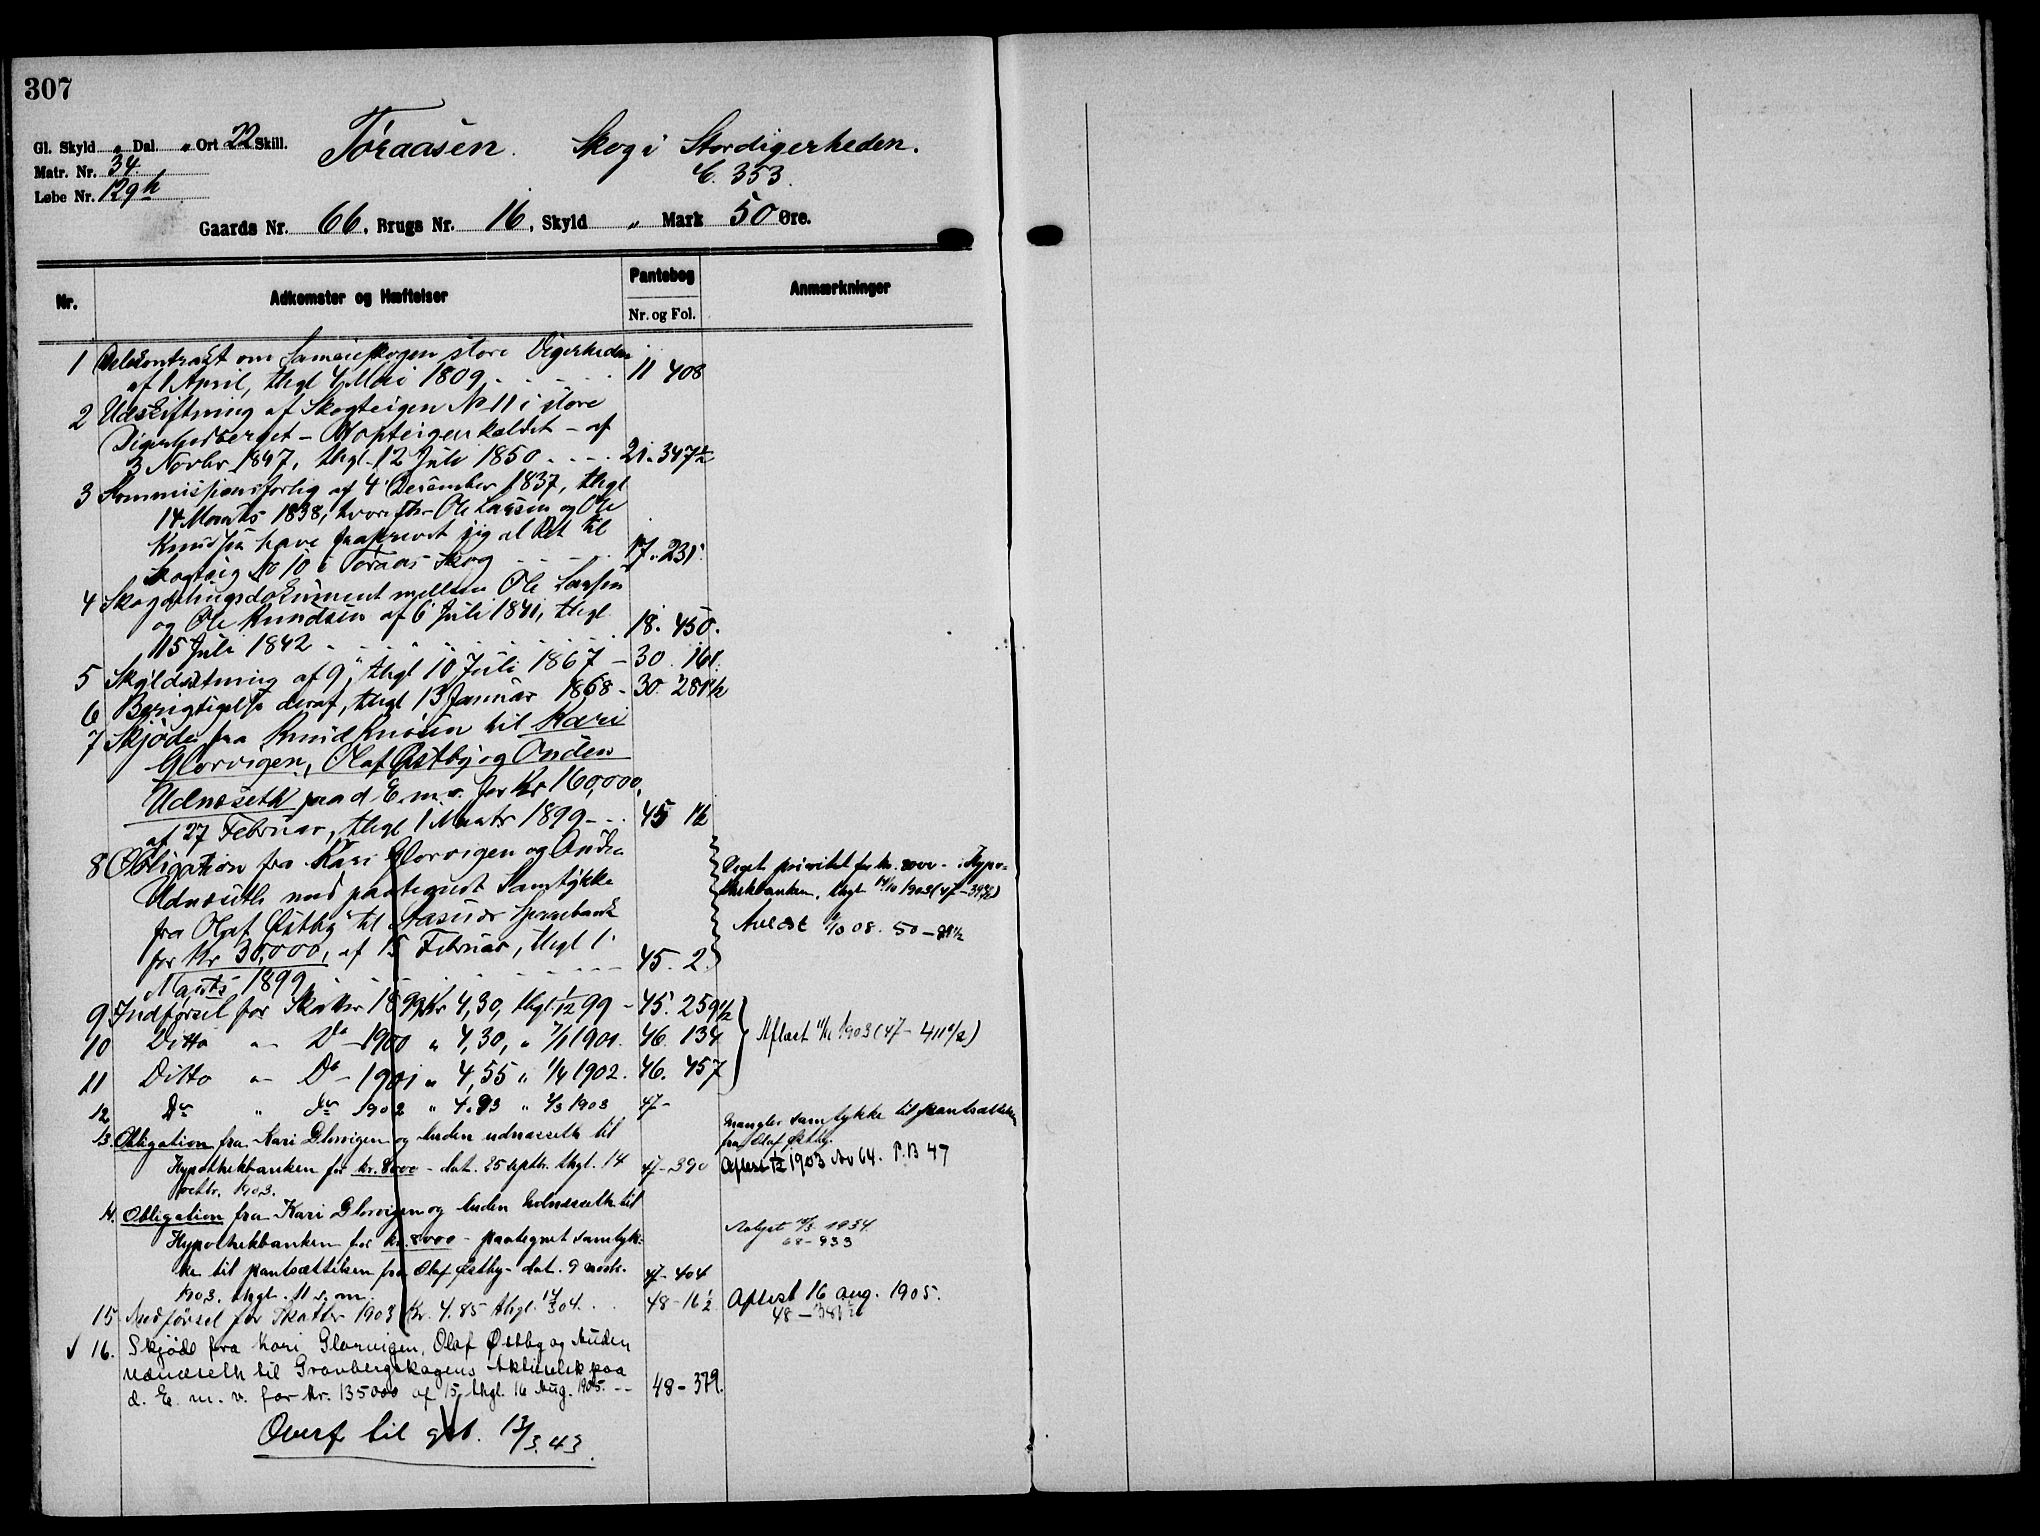 307
Gl. Skyld „ Dal. „ Ort 22 Skill.
Töraasen. Skog i Stordigerheden.
Matr. Nr. 34.
C. 353.
Løbe Nr. 129h
Gaards Nr. 66, Brugs Nr. 16, Skyld „ Mark 50 Øre.
Nr. Adkomster og Hæftelser Pantebog Anmærkninger
Nr. og Fol.
1 Delekontrakt om Sameieskogen store Digerheden
af 1 April, thgl 4 Mai 1809 11 408
2 Udskiftning af Skogteigen No 11 i store
Digerhedberget - kaldet - af
3 Novbr 1847, thgl. 12 Juli 1850 21. 347½
3 Kommissionsforlig af 4 December 1837, thgl
14 Marts 1838, hvorefter Ole Larsen og Ole
Knudsen have fraskrevet sig al Ret til
Skogteig No 10 i Toraas Skog 17. 231.
4 Skogdelingsdokument mellem Ole Larsen
og Ole Knudsen af 6 Juli 1841, thgl
15 Juli 1842 18. 450.
5 Skyldsetning af 9, thgl 10 Juli 1867 - 30. 161.
6 Berigtigelse deraf, thgl 13 Januar 1868 - 30. 281½
7 Skjøde fra Knud Knutsen til Kari
Glorvigen, Olaf Østby og Anden
Udnæseth paa d. E. m. v. for Kr 160,000,
af 27 Februar, thgl 1 Marts 1899 - 45 1½
8 Obligation fra Kari Glorvigen og Anden
Udnæseth med paategnet Samtykke
fra Olaf Østby til Aasnes Sparebank
for Kr 30,000, af 15 Februar, thgl 1
Marts 1899 45. 2.
Veget prioritet for kr. 8000 - i Hypo-
thekbanken, thgl. 14/10 1903 (47-391½)
Avlæst 9/10 08. 50-89½
9 Indførsel for Skatter 1899 Kr 4,30, thgl 1/12 99 - 45. 259½
10 Ditto „ Do - 1900 „ 4,30, „ 7/1 1901. 46. 134
Aflæst 11/11 1903 (47-411½)
11 Ditto „ Do - 1901 „ 4,55 „ 1/4 1902. 46. 457
12 Do „ do 1902 „ 4.93 „ 4/3 1903 47-
13. Obligation fra Kari Glorvigen og Anden Udnæseth til
Hypothekbanken for kr. 8000 - dat. 25 septbr. thgl. 14
octbr. 1903. 47-390
Mangler samtykke til pantsættelsen
fra Olaf Østby.
Aflæst 1903 No 64. P.B 47
14. Obligation fra Kari Glorvigen og Anden Udnæseth til
Hypothekbanken for kr. 8000 - paategnet samtyk-
ke til pantsættelsen fra Olaf Østby - dat. 9 novbr.
1903. thgl. 11 s. m. 47-404
Avlyst 10/3 1934.
68-933
15. Indførsel for Skatter 1903 Kr. 4.85 thgl. 14/3 04. 48-16½
Aflæst 16 aug. 1905.
48-381½
✓ 16. Skjøde fra Kari Glorvigen, Olaf Østby og Anden
Udnæseth til Gravbergskogens Aktieselsk paa
d. E. m. v. for kr. 135000 af 15, thgl. 16 Aug. 1905. -- 48-379.
Overf til gbl. 13/3.43.